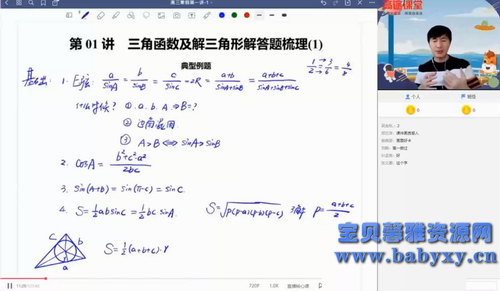 高三暑假第一讲-1
高途课堂
第 01 讲 三角函数及解三角形解答题梳理(1)
典型例题
基础: 1. 正弦: a/sinA = b/sinB = c/sinC = 2R = a+b/sinA+sinB = a+b+c/sinA+sinB+sinC
1/2 = 3/6 = 4/8
什么时候? ① a. b. A ⇒ B=?
② 边角混用
③ A>B ⟺ sinA>sinB
2. cosA = b²+c²-a²/2bc
3. sin(A+B) = sin(π-C) = sinC
4. S=½absinC = ½bc sinA. S=√p(p-a)(p-b)(p-c) 了解 p= a+b+c/2
c b r a S=½(a+b+c)·r
个人
6
0
宝贝馨雅资源网
www.babyxy.cn
720P 1.0X